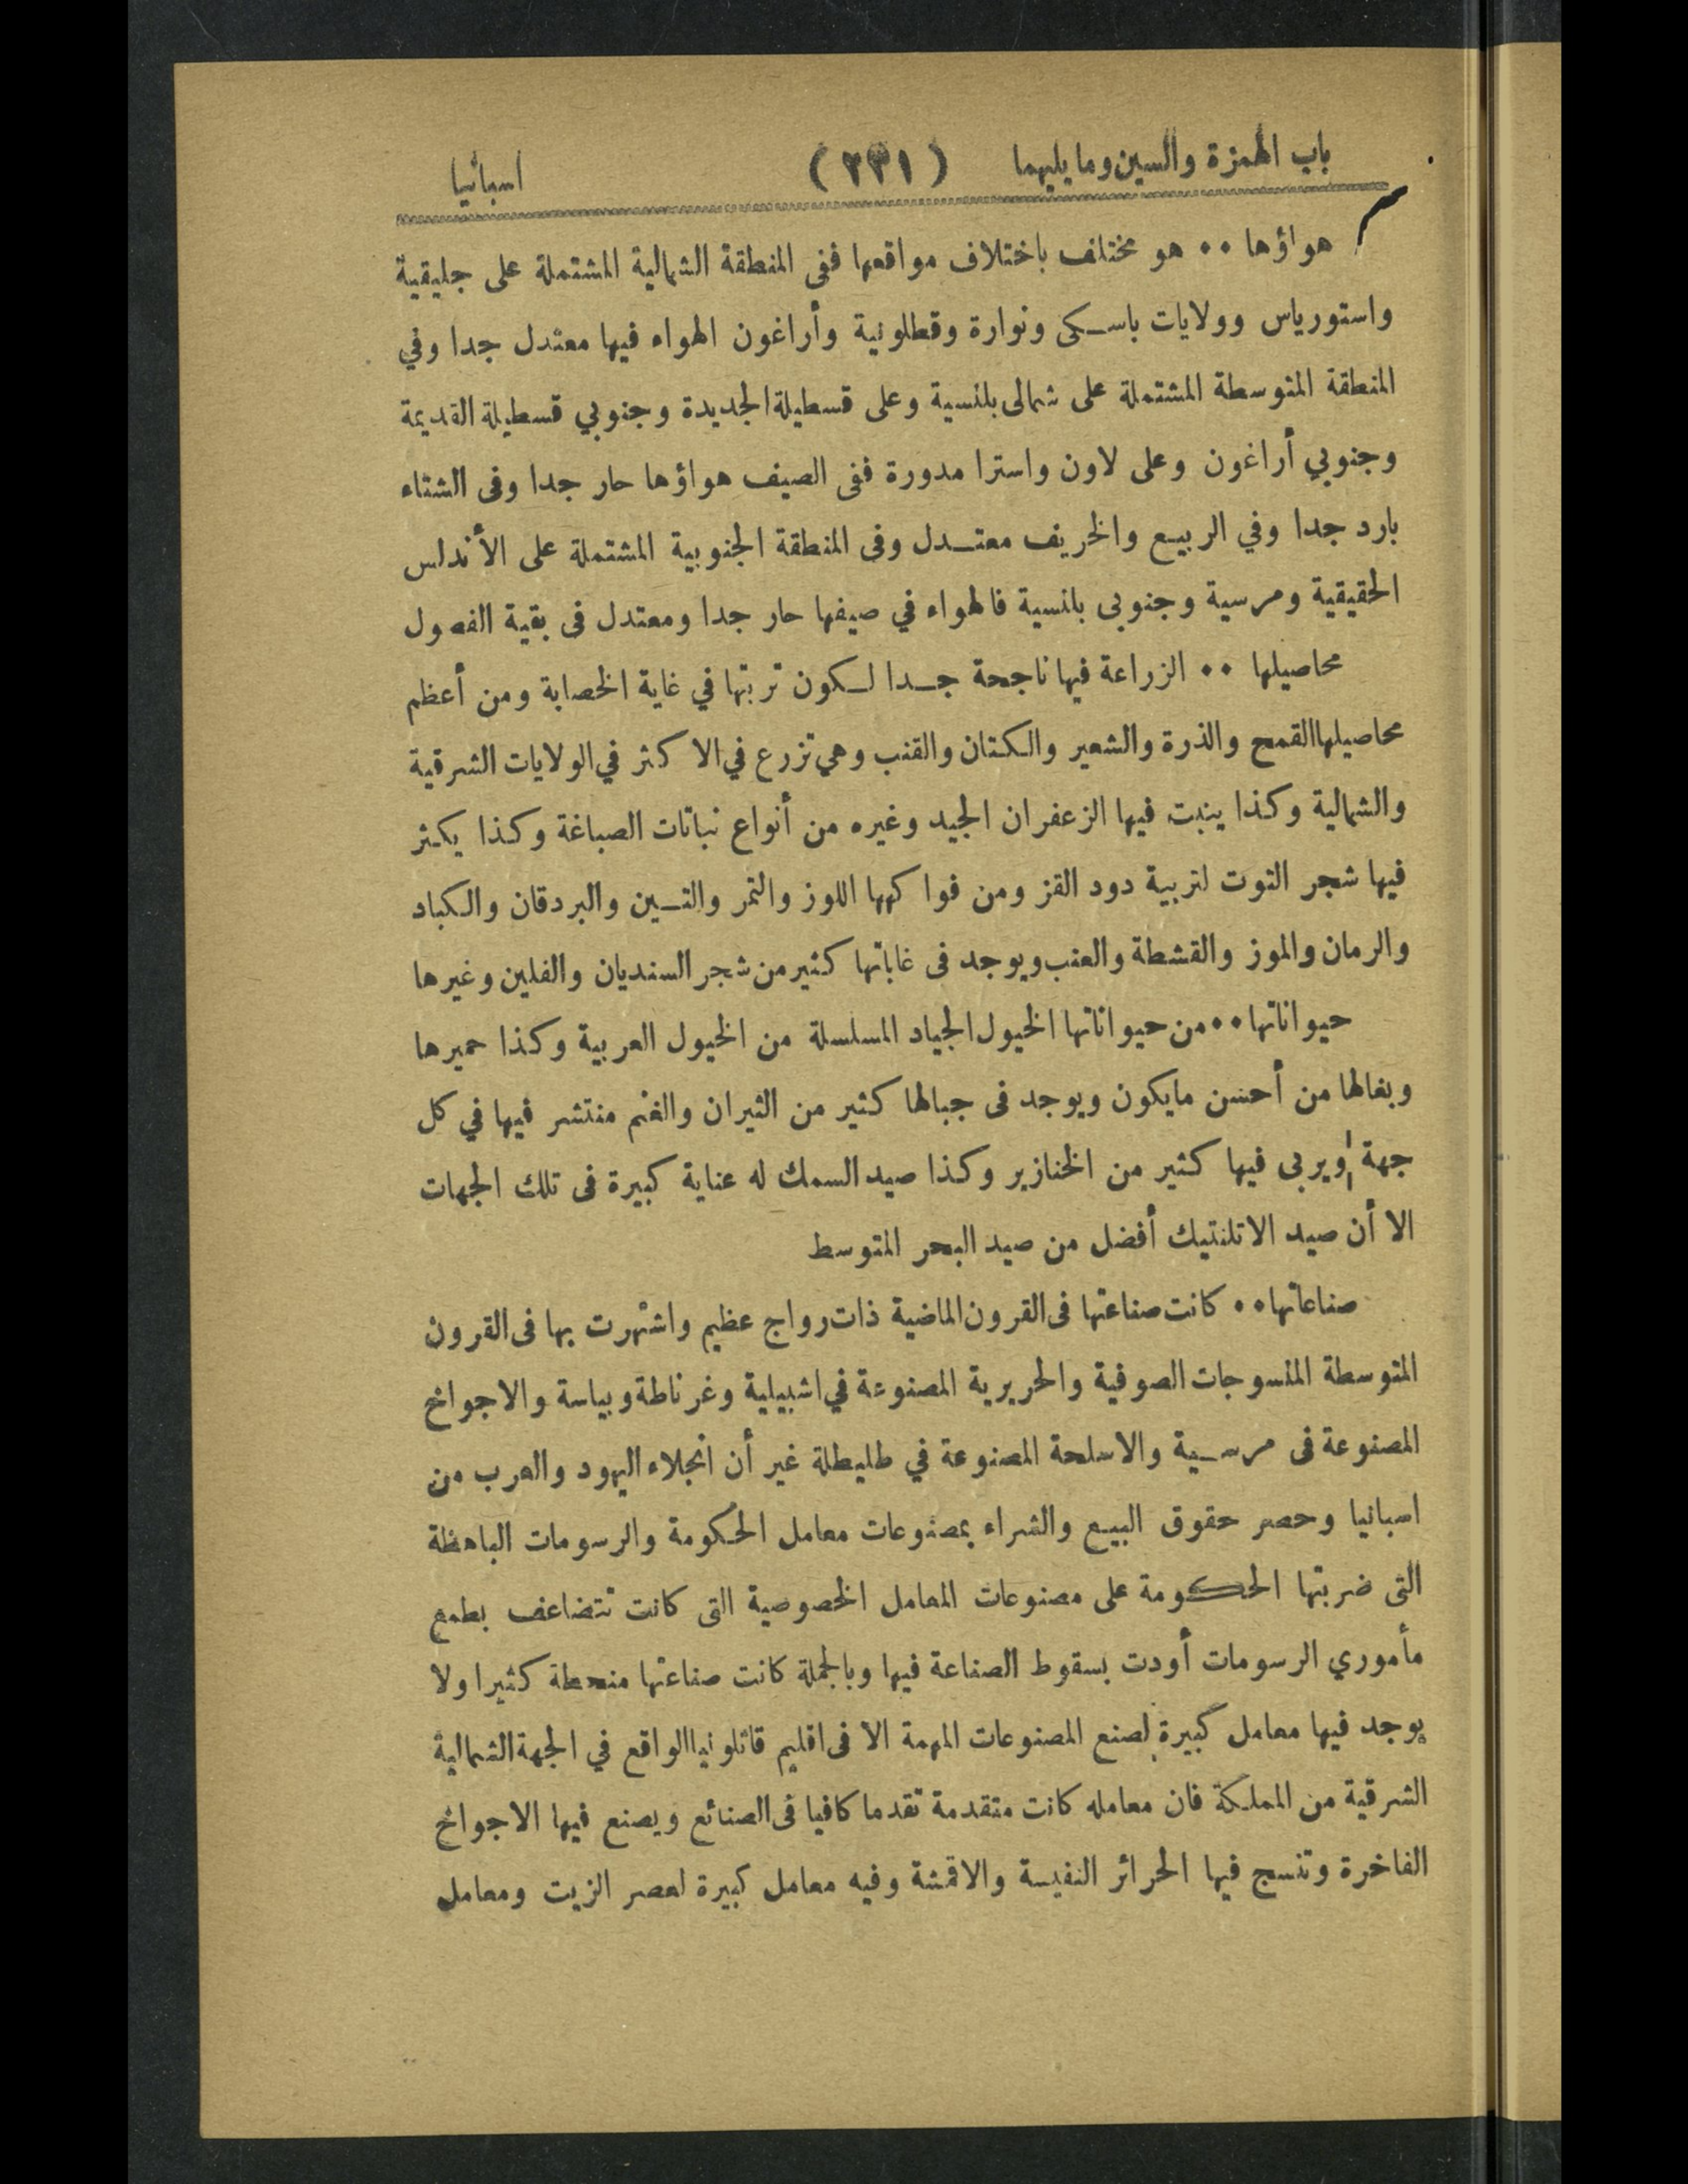 باب الهمزة والسين وما يليهما (٢٣١) اسبانيا
هواؤها ٠٠ هو مختلف باختلاف مواقعها ففى المنطقة الشمالية المشتملة على جليقية
واستورياس وولايات باسكى ونوارة وقطلونية وأراغون الهواء فيها معتدل جدا وفي
المنطقة المتوسطة المشتملة على شمالى بلنسية وعلى قسطيلة الجديدة وجنوبي قسطيلة القديمة
وجنوبي أراغون وعلى لاون واسترا مدورة ففى الصيف هواؤها حار جدا وفى الشتاء
بارد جدا وفي الربيع والخريف معتدل وفى المنطقة الجنوبية المشتملة على الأندلس
الحقيقية ومرسية وجنوبى بلنسية فالهواء في صيفها حار جدا ومعتدل فى بقية الفصول
محاصيلها ٠٠ الزراعة فيها ناجحة جدا لكون تربتها في غاية الخصابة ومن أعظم
محاصيلها القمح والذرة والشعير والكتان والقنب وهي تزرع في الاكثر في الولايات الشرقية
والشمالية وكذا ينبت فيها الزعفران الجيد وغيره من أنواع نباتات الصباغة وكذا يكثر
فيها شجر التوت لتربية دود القز ومن فواكهها اللوز والتمر والتين والبردقان والكباد
والرمان والموز والقشطة والعنب ويوجد فى غاباتها كثير من شجر السنديان والفلين وغيرها
حيواناتها ٠٠ من حيواناتها الخيول الجياد المسلسلة من الخيول العربية وكذا حميرها
وبغالها من أحسن مايكون ويوجد فى جبالها كثير من الثيران والغنم منتشر فيها في كل
جهة ويربى فيها كثير من الخنازير وكذا صيد السمك له عناية كبيرة فى تلك الجهات
الا أن صيد الاتلنتيك أفضل من صيد البحر المتوسط
صناعاتها ٠٠ كانت صناعتها فى القرون الماضية ذات رواج عظيم واشتهرت بها فى القرون
المتوسطة المنسوجات الصوفية والحريرية المصنوعة في اشبيلية وغرناطة وبياسة والاجواخ
المصنوعة فى مرسية والاسلحة المصنوعة في طليطلة غير أن انجلاء اليهود والعرب من
اسبانيا وحصر حقوق البيع والشراء بمصنوعات معامل الحكومة والرسومات الباهظة
التى ضربتها الحكومة على مصنوعات المعامل الخصوصية التى كانت تتضاعف بطمع
مأموري الرسومات أودت بسقوط الصناعة فيها وبالجملة كانت صناعتها منحطة كثيرا ولا
يوجد فيها معامل كبيرة لصنع المصنوعات المهمة الا فى اقليم قاتلونيا الواقع في الجهة الشمالية
الشرقية من المملكة فان معامله كانت متقدمة تقدما كافيا فى الصنائع ويصنع فيها الاجواخ
الفاخرة وتنسج فيها الحرائر النفيسة والاقمشة وفيه معامل كبيرة لعصر الزيت ومعامل